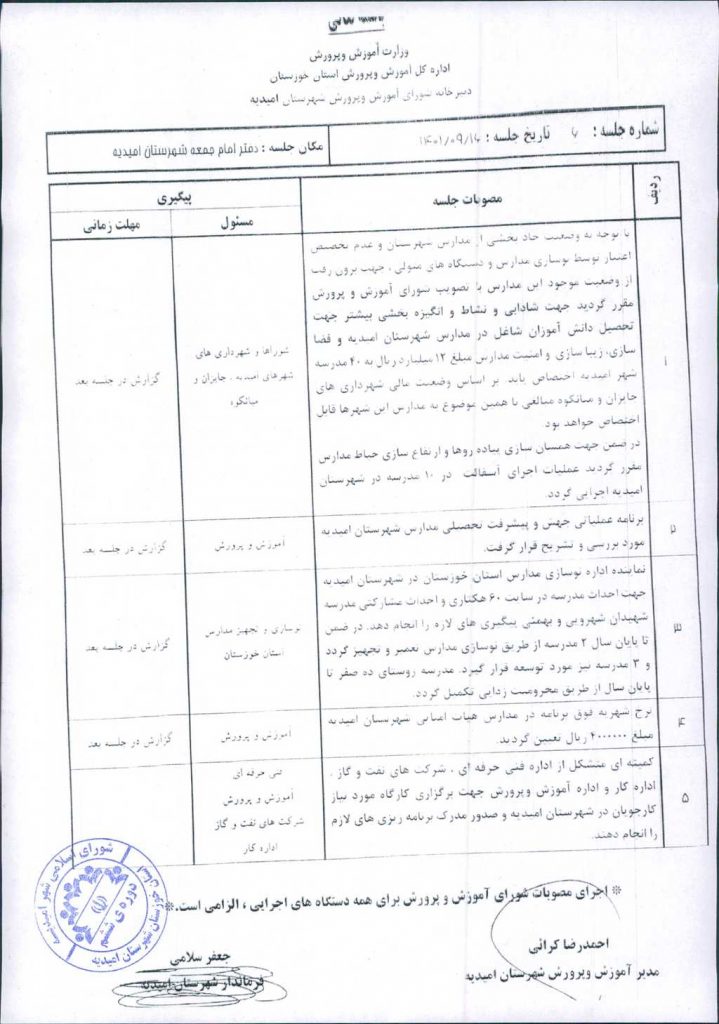 بسمه تعالی
وزارت آموزش وپرورش
اداره کل آموزش وپرورش استان خوزستان
دبیرخانه شورای آموزش وپرورش شهرستان امیدیه
شماره جلسه : ۷ تاریخ جلسه : ۱۴۰۱/۰۹/۱۶
مکان جلسه : دفتر امام جمعه شهرستان امیدیه
ردیف
مصوبات جلسه
پیگیری
مسئول
مهلت زمانی
۱
با توجه به وضعیت حاد بخشی از مدارس شهرستان و عدم تخصیص
اعتبار توسط نوسازی مدارس و دستگاه های متولی ، جهت برون رفت
از وضعیت موجود این مدارس با تصویب شورای آموزش و پرورش
مقرر گردید جهت شادابی و نشاط و انگیزه بخشی بیشتر جهت
تحصیل دانش آموزان شاغل در مدارس شهرستان امیدیه و فضا
سازی، زیبا سازی و امنیت مدارس مبلغ ۱۲ میلیارد ریال به ۴۰ مدرسه
شهر امیدیه اختصاص یابد. بر اساس وضعیت مالی شهرداری های
جایزان و میانکوه مبالغی با همین موضوع به مدارس این شهرها قابل
اختصاص خواهد بود.
در ضمن جهت همسان سازی پیاده روها و ارتفاع سازی حیاط مدارس
مقرر گردید عملیات اجرای آسفالت در ۱۰ مدرسه در شهرستان
امیدیه اجرایی گردد.
شوراها و شهرداری های
شهرهای امیدیه ، جایزان و
میانکوه
گزارش در جلسه بعد
۲
برنامه عملیاتی جهش و پیشرفت تحصیلی مدارس شهرستان امیدیه
مورد بررسی و تشریح قرار گرفت.
آموزش و پرورش
گزارش در جلسه بعد
۳
نماینده اداره نوسازی مدارس استان خوزستان در شهرستان امیدیه
جهت احداث مدرسه در سایت ۶۰ هکتاری و احداث مشارکتی مدرسه
شهیدان شهرویی و بهمئی پیگیری های لازه را انجام دهد. در ضمن
تا پایان سال ۲ مدرسه از طریق نوسازی مدارس تعمیر و تجهیز گردد
و ۳ مدرسه نیز مورد توسعه قرار گیرد. مدرسه روستای ده صفر تا
پایان سال از طریق محرومیت زدایی تکمیل گردد.
نوسازی و تجهیز مدارس
استان خوزستان
گزارش در جلسه بعد
۴
نرخ شهریه فوق برنامه در مدارس هیات امنایی شهرستان امیدیه
مبلغ ۴۰۰۰۰۰۰ ریال تعیین گردید.
آموزش و پرورش
گزارش در جلسه بعد
۵
کمیته ای متشکل از اداره فنی حرفه ای ، شرکت های نفت و گاز ،
اداره کار و اداره آموزش وپرورش جهت برگزاری کارگاه مورد نیاز
کارجویان در شهرستان امیدیه و صدور مدرک برنامه ریزی های لازم
را انجام دهند.
فنی حرفه ای
آموزش و پرورش
شرکت های نفت و گاز
اداره کار
* اجرای مصوبات شورای آموزش و پرورش برای همه دستگاه های اجرایی ، الزامی است.*
احمدرضا کرائی
مدیر آموزش وپرورش شهرستان امیدیه
جعفر سلامی
فرماندار شهرستان امیدیه
شورای اسلامی شهر امیدیه
استان خوزستان شهرستان امیدیه
دوره ی ششم